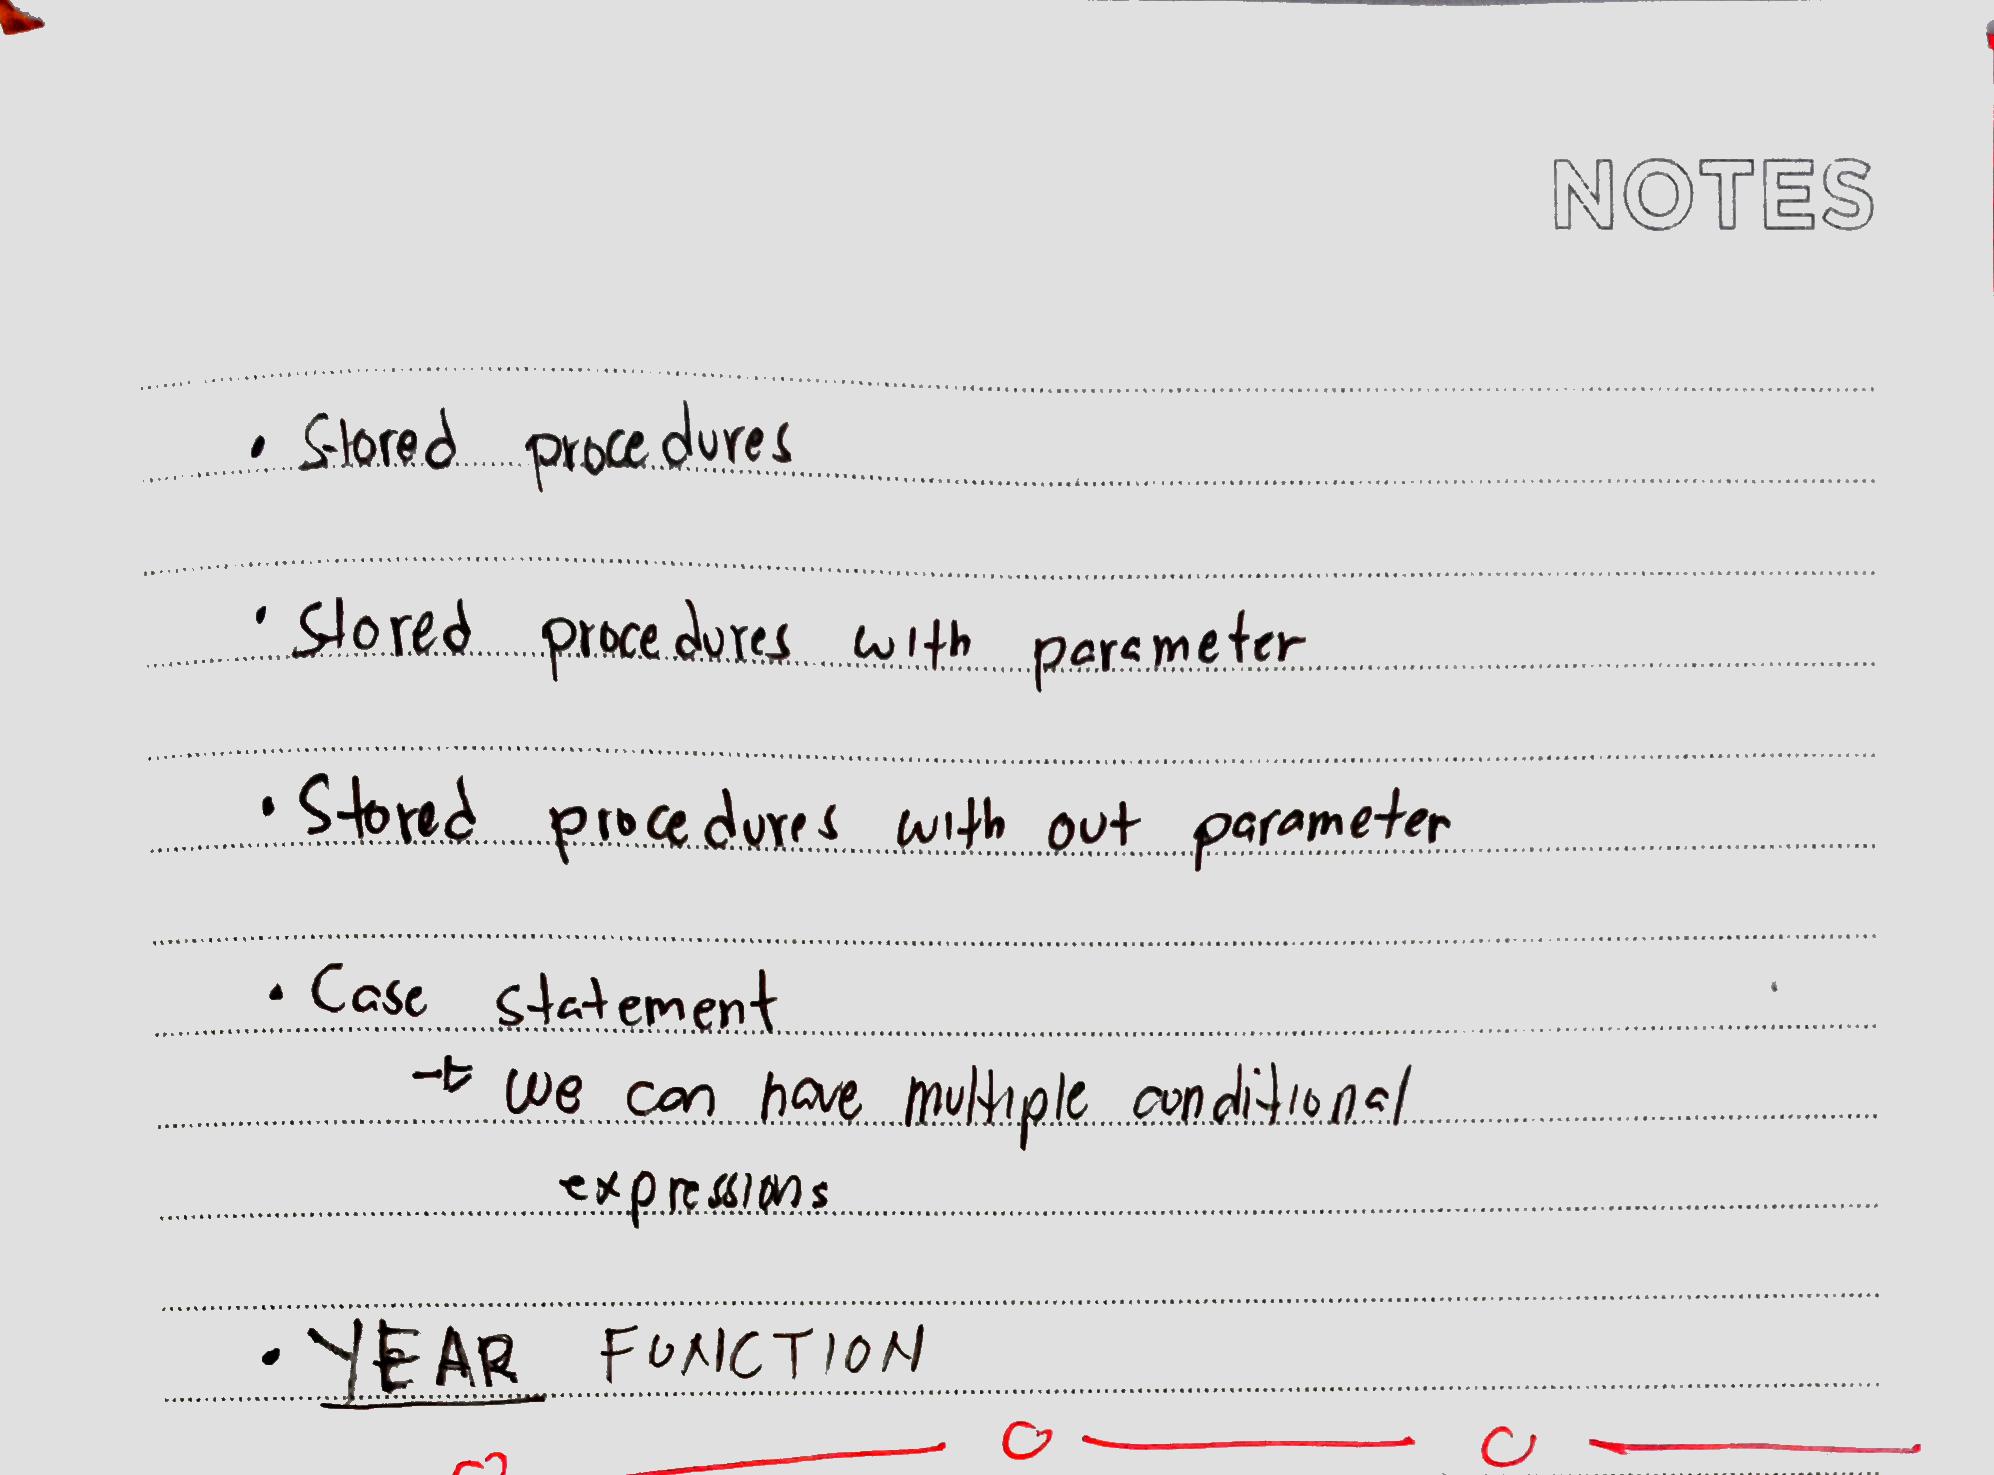 NOTES
• Stored procedures
• Stored procedures with parameter
• Stored procedures with out parameter
• Case statement
→ we can have multiple conditional
expressions
• YEAR FUNCTION